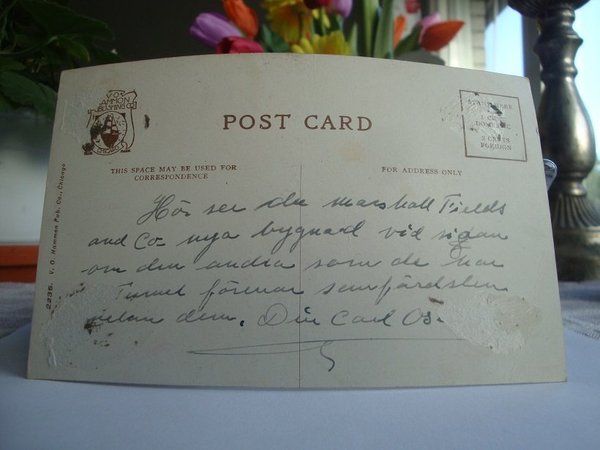 V.O.
HAMMON
PUBLISHING CO.
CHICAGO
POST CARD
1 CENT
2 CENTS
FOREIGN
THIS SPACE MAY BE USED FOR
CORRESPONDENCE
FOR ADDRESS ONLY
2235. V. O. Hammon Pub. Co., Chicago
Här ser du marshall Fields
and Co. nya bygnad vid sidan
om den andra som de
Tunnel förenar samfärdslen
dem. Din Carl Os.